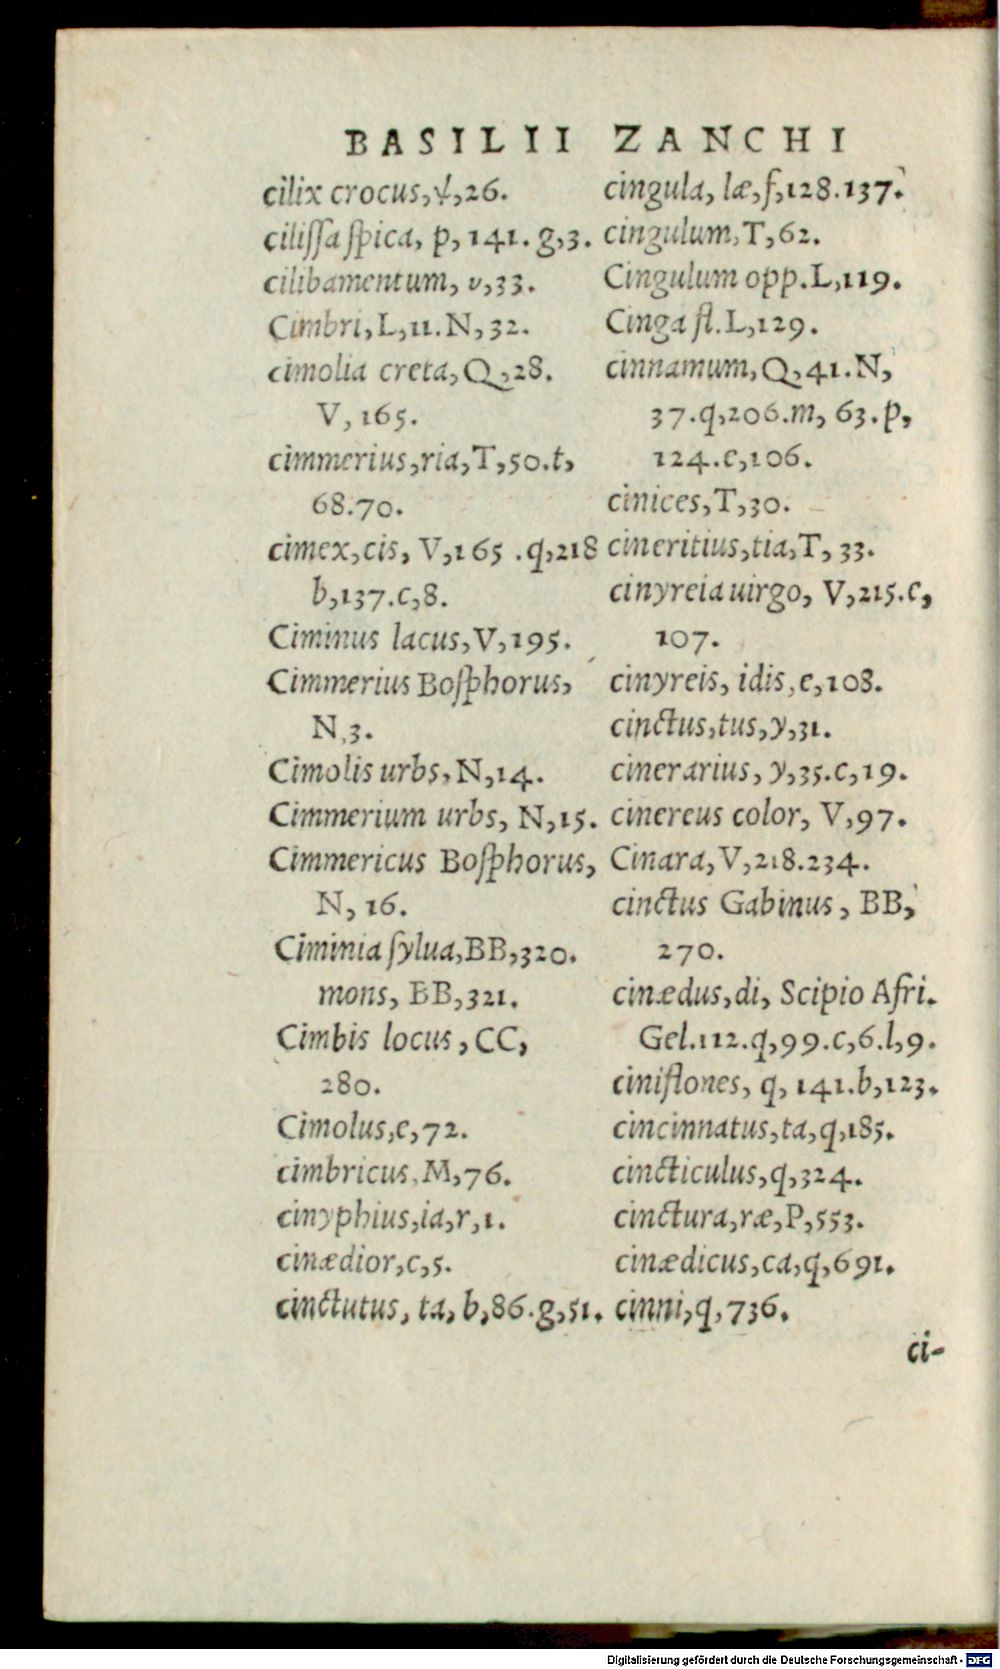 BASILII ZANCHI
cilix crocus,ψ,26.
cilissa spica, p, 141. g,3.
cilibamentum, v,33.
Cimbri, L,11. N, 32.
cimolia creta, Q,28.
V, 165.
cimmerius,ria,T,50.t,
68.70.
cimex,cis, V,165 .q,218
b,137.c,8.
Ciminus lacus,V,195.
Cimmerius Bosphorus,
N,3.
Cimolis urbs,N,14.
Cimmerium urbs, N,15.
Cimmericus Bosphorus,
N, 16.
Ciminia sylua,BB,320.
mons, BB,321.
Cimbis locus, CC,
280.
Cimolus,e,72.
cimbricus,M,76.
cinyphius,ia,r,1.
cinædior,c,5.
cinctutus, ta, b,86.g,51.
cingula, læ,f,128.137.
cingulum,T,62.
Cingulum opp.L,119.
Cinga fl.L,129.
cinnamum,Q,41.N,
37.q,206.m, 63.p,
124.e,106.
cinices,T,30.
cineritius,tia,T, 33.
cinyreia uirgo, V,215.e,
107.
cinyreis, idis,e,108.
cinctus,tus,y,31.
cinerarius, y,35.c,19.
cinereus color, V,97.
Cinara,V,218.234.
cinctus Gabinus, BB,
270.
cinædus,di, Scipio Afri.
Gel.112.q,99.c,6.l,9.
ciniflones, q, 141.b,123.
cincinnatus,ta,q,185.
cincticulus,q,324.
cinctura,ræ,P,553.
cinædicus,ca,q,691.
cinni,q,736.
ci-
Digitalisierung gefördert durch die Deutsche Forschungsgemeinschaft - DFG